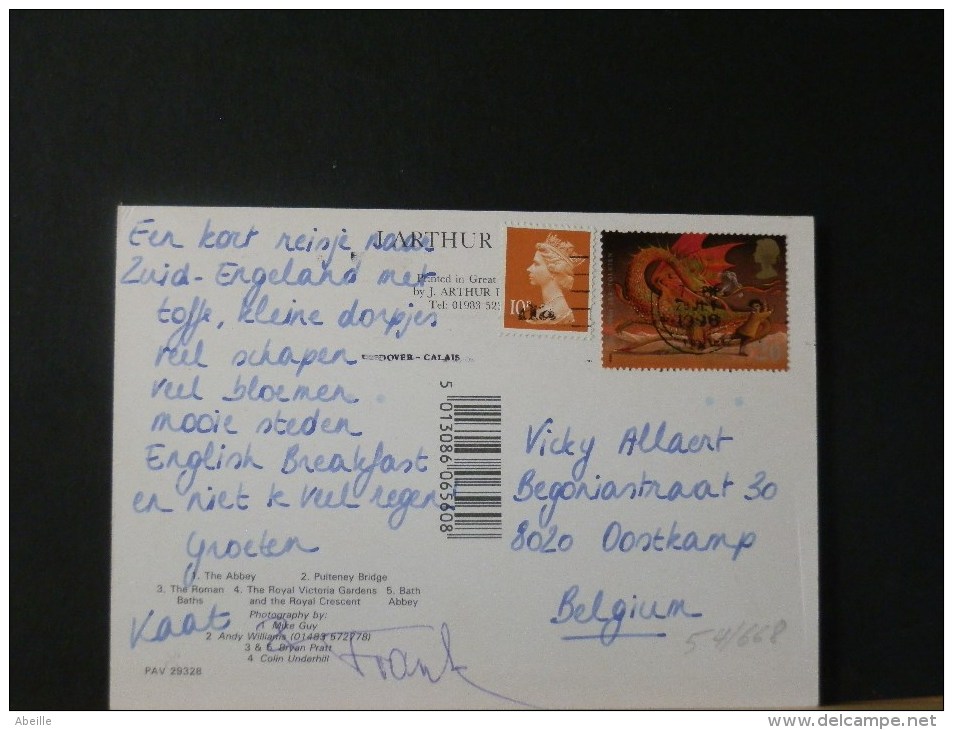 Een kort reisje naar
Zuid-Engeland met
toffe, kleine dorpjes
veel schapen
veel bloemen
mooie steden
English Breakfast
en niet te veel regen
Groeten
Kaat & Frank
J. ARTHUR
Printed in Great
by J. ARTHUR
Tel: 01983 52
DOVER - CALAIS
5 013086 065608
10P
1998
Vicky Allaert
Begoniastraat 30
8020 Oostkamp
Belgium
54/668
1. The Abbey 2. Pulteney Bridge
3. The Roman Baths 4. The Royal Victoria Gardens and the Royal Crescent 5. Bath Abbey
Photography by:
1 Mike Guy
2 Andy Williams (01483 572778)
3 & 5 Bryan Pratt
4 Colin Underhill
PAV 29328
Abeille
www.delcampe.net